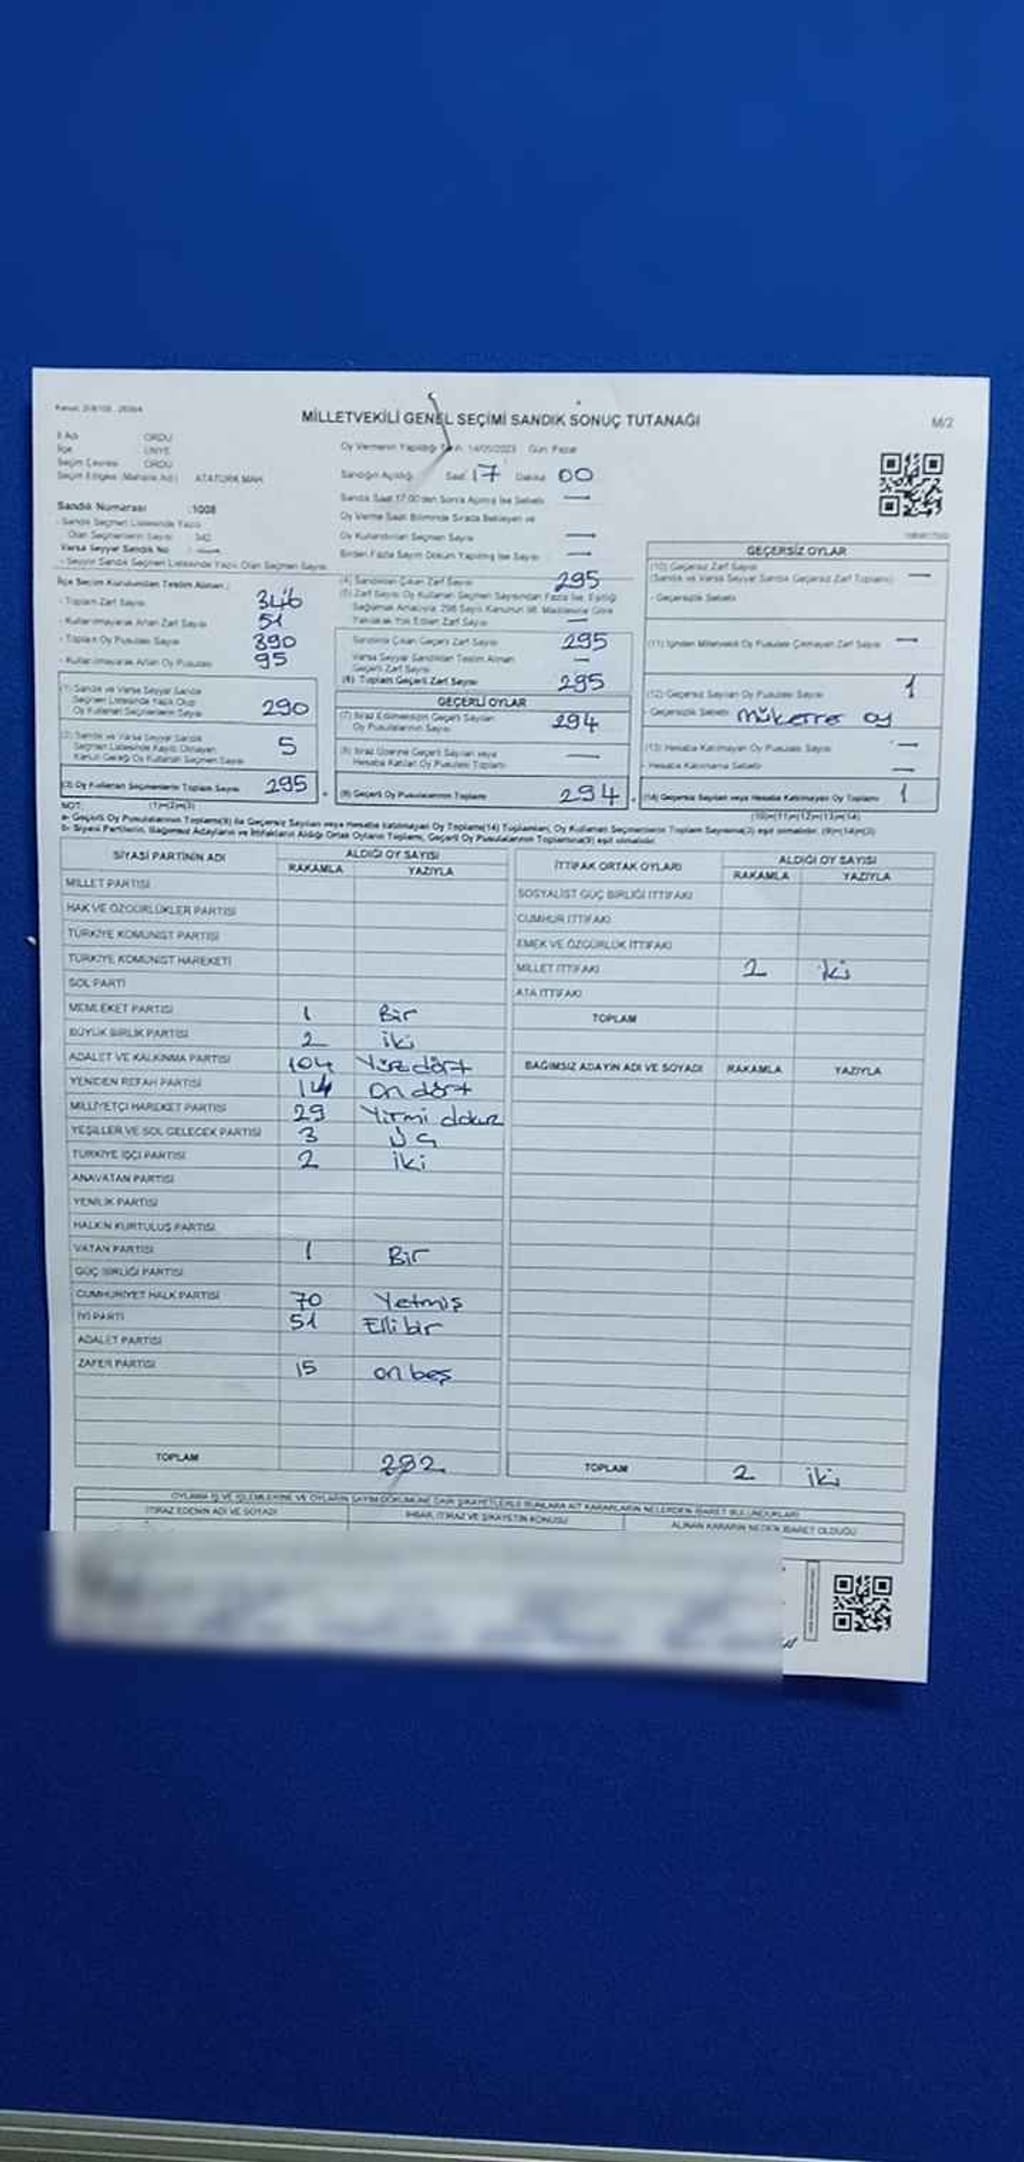 MİLLETVEKİLİ GENEL SEÇİMİ SANDIK SONUÇ TUTANAĞI
M/2
İl Adı ORDU
İlçe ÜNYE
Seçim Çevresi ORDU
Seçim Bölgesi (Mahalle Adı) ATATÜRK MAH
Oy Vermenin Yapıldığı 14/05/2023 Gün Pazar
Sandığın Açıldığı Saat 17 Dakika 00
Sandık Saat 17.00'den Sonra Açılmış İse Sebebi —
Oy Verme Saati Bitiminde Sırada Bekleyen ve
Oy Kullandırılan Seçmen Sayısı —
Birden Fazla Sayım Döküm Yapılmış İse Sayısı —
Sandık Numarası :1008
- Sandık Seçmen Listesinde Yazılı
Olan Seçmenlerin Sayısı 342
Varsa Seyyar Sandık No : —
- Seyyar Sandık Seçmen Listesinde Yazılı Olan Seçmen Sayısı
İlçe Seçim Kurulundan Teslim Alınan;
- Toplam Zarf Sayısı 346
- Kullanılmayarak Artan Zarf Sayısı 51
- Toplam Oy Pusulası Sayısı 390
- Kullanılmayarak Artan Oy Pusulası 95
(1) Sandık ve Varsa Seyyar Sandık
Seçmen Listesinde Yazılı Olup
Oy Kullanan Seçmenlerin Sayısı 290
(2) Sandık ve Varsa Seyyar Sandık
Seçmen Listesinde Kayıtlı Olmayan
Kanun Gereği Oy Kullanan Seçmen Sayısı 5
(3) Oy Kullanan Seçmenlerin Toplam Sayısı 295
(1)+(2)=(3)
(4) Sandıktan Çıkan Zarf Sayısı 295
(5) Zarf Sayısı Oy Kullanan Seçmen Sayısından Fazla İse, Eşitliği
Sağlamak Amacıyla, 298 Sayılı Kanunun 98. Maddesine Göre
Yakılarak Yok Edilen Zarf Sayısı —
Sandıkta Çıkan Geçerli Zarf Sayısı 295
Varsa Seyyar Sandıktan Teslim Alınan
Geçerli Zarf Sayısı —
(6) Toplam Geçerli Zarf Sayısı 295
GEÇERLİ OYLAR
(7) İtiraz Edilmeksizin Geçerli Sayılan
Oy Pusulalarının Sayısı 294
(8) İtiraz Üzerine Geçerli Sayılan veya
Hesaba Katılan Oy Pusulası Toplamı —
(9) Geçerli Oy Pusulalarının Toplamı 294
GEÇERSİZ OYLAR
(10) Geçersiz Zarf Sayısı
(Sandık ve Varsa Seyyar Sandık Geçersiz Zarf Toplamı) —
- Geçersizlik Sebebi
(11) İçinden Milletvekili Oy Pusulası Çıkmayan Zarf Sayısı —
(12) Geçersiz Sayılan Oy Pusulası Sayısı 1
Geçersizlik Sebebi mükerre oy
(13) Hesaba Katılmayan Oy Pusulası Sayısı —
- Hesaba Katılmama Sebebi —
(14) Geçersiz Sayılan veya Hesaba Katılmayan Oy Toplamı 1
(10)+(11)+(12)+(13)=(14)
NOT:
a- Geçerli Oy Pusulalarının Toplamı(9) ile Geçersiz Sayılan veya Hesaba Katılmayan Oy Toplamı(14) Toplamları, Oy Kullanan Seçmenlerin Toplam Sayısına(3) eşit olmalıdır. (9)+(14)=(3)
b- Siyasi Partilerin, Bağımsız Adayların ve İttifakların Aldığı Ortak Oyların Toplamı, Geçerli Oy Pusulalarının Toplamına(9) eşit olmalıdır.
SİYASİ PARTİNİN ADI ALDIĞI OY SAYISI
RAKAMLA YAZIYLA
MİLLET PARTİSİ
HAK VE ÖZGÜRLÜKLER PARTİSİ
TÜRKİYE KOMÜNİST PARTİSİ
TÜRKİYE KOMÜNİST HAREKETİ
SOL PARTİ
MEMLEKET PARTİSİ 1 Bir
BÜYÜK BİRLİK PARTİSİ 2 iki
ADALET VE KALKINMA PARTİSİ 104 Yüzdört
YENİDEN REFAH PARTİSİ 14 on dört
MİLLİYETÇİ HAREKET PARTİSİ 29 Yirmi dokuz
YEŞİLLER VE SOL GELECEK PARTİSİ 3 Üç
TÜRKİYE İŞÇİ PARTİSİ 2 iki
ANAVATAN PARTİSİ
YENİLİK PARTİSİ
HALKIN KURTULUŞ PARTİSİ
VATAN PARTİSİ 1 Bir
GÜÇ BİRLİĞİ PARTİSİ
CUMHURİYET HALK PARTİSİ 70 Yetmiş
İYİ PARTİ 51 Elli bir
ADALET PARTİSİ
ZAFER PARTİSİ 15 on beş
TOPLAM 292
İTTİFAK ORTAK OYLARI ALDIĞI OY SAYISI
RAKAMLA YAZIYLA
SOSYALİST GÜÇ BİRLİĞİ İTTİFAKI
CUMHUR İTTİFAKI
EMEK VE ÖZGÜRLÜK İTTİFAKI
MİLLET İTTİFAKI 2 iki
ATA İTTİFAKI
TOPLAM
BAĞIMSIZ ADAYIN ADI VE SOYADI RAKAMLA YAZIYLA
TOPLAM 2 iki
OYLAMA İŞ VE İŞLEMLERİNE VE OYLARIN SAYIM DÖKÜMÜNE DAİR ŞİKAYETLERLE BUNLARA AİT KARARLARIN NELERDEN İBARET BULUNDUKLARI
İTİRAZ EDENİN ADI VE SOYADI
İHBAR, İTİRAZ VE ŞİKAYETİN KONUSU
ALINAN KARARIN NEDEN İBARET OLDUĞU